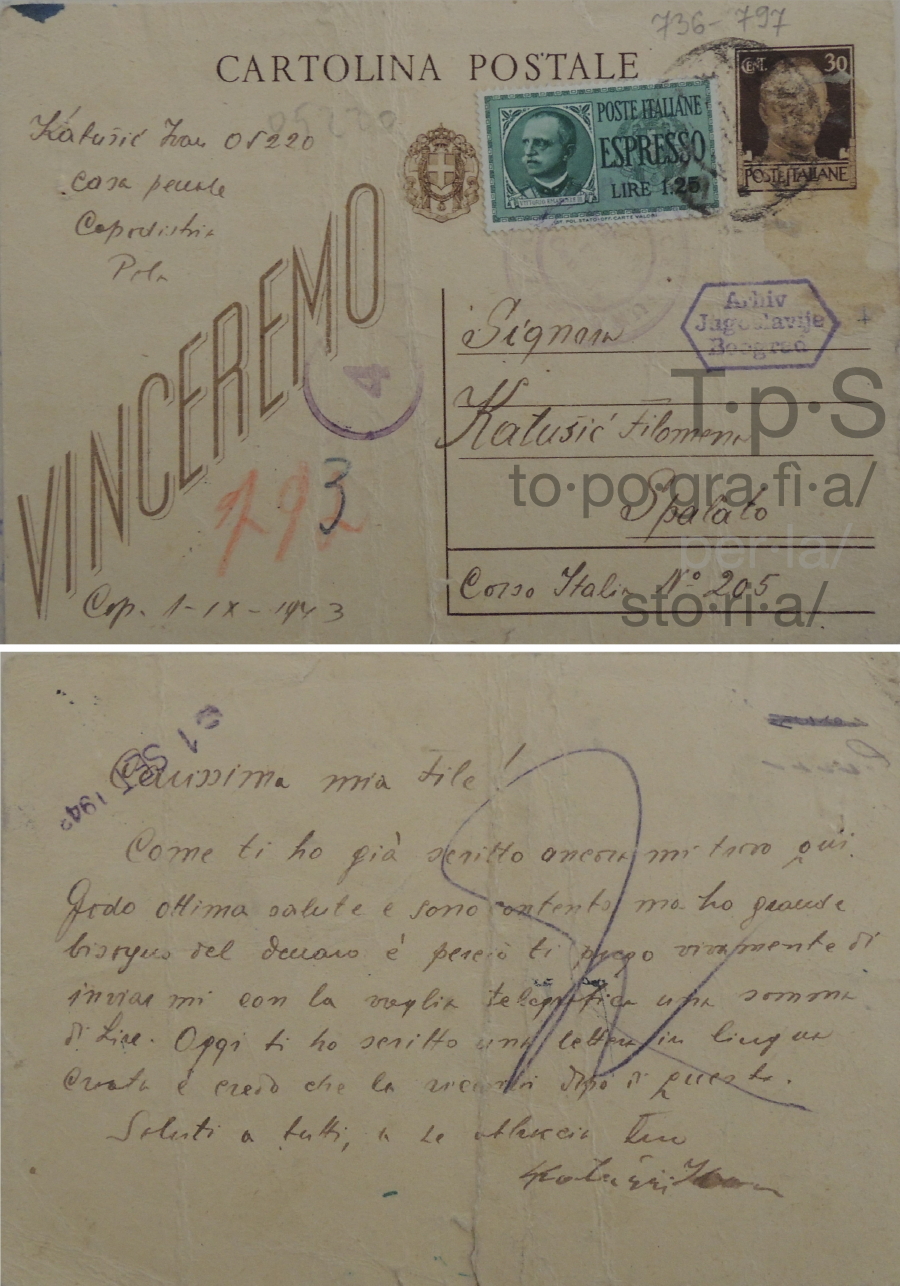 736-797
CARTOLINA POSTALE
CENT. 30
POSTE ITALIANE
POSTE ITALIANE
ESPRESSO
LIRE 1,25
05220
Katušić Ivan 05220
Casa penale
Capodistria
Pola
VINCEREMO
4
Arhiv
Jugoslavije
Beograd
Signora
Katušić Filomena
Spalato
Corso Italia No 205
793
Cop. 1-IX-1943
T·p·S
to·po·gra·fì·a/
per·la/
sto·ri·a/
1 SET 194
Carissima mia File!
Come ti ho già scritto ancora mi trovo qui.
Godo ottima salute e sono contento ma ho grande
bisogno del denaro è perciò ti prego vivamente di
inviar mi con la vaglia telegrafica una somma
di Lire. Oggi ti ho scritto una lettera in lingua
Croata è credo che la ricevi dopo di questa.
Saluti a tutti, a te abbraccia Tuo
Katušić Ivan